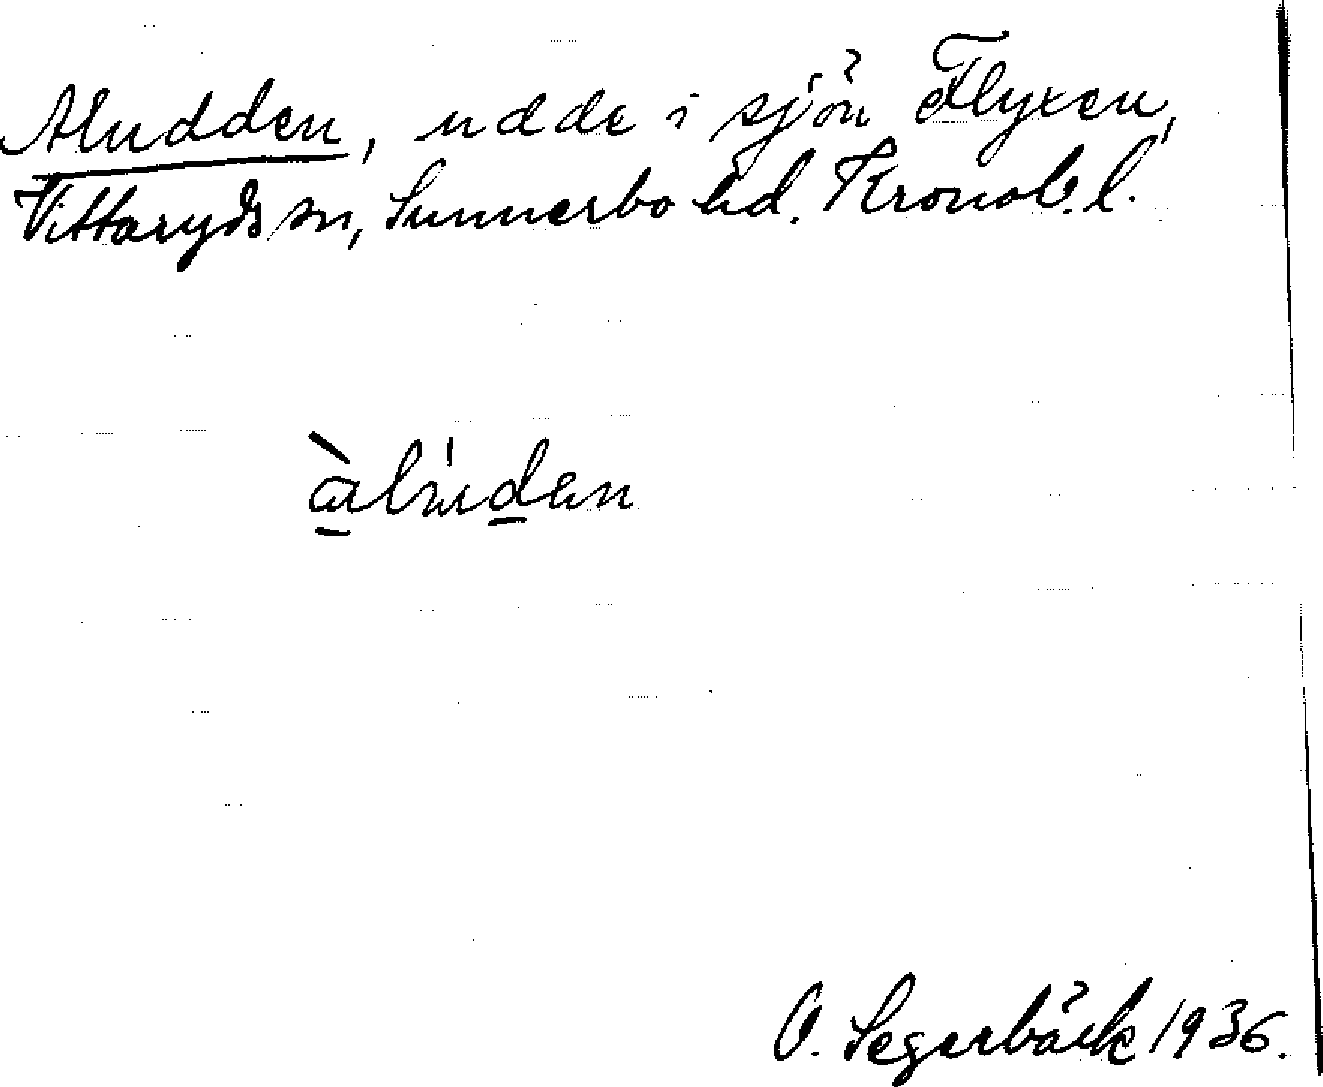 Aludden, udde i sjön Flyxen,
Vittaryds sn, Sunnerbo hd. Kronob. l.
àlúden
O. Segerbäck 1936.